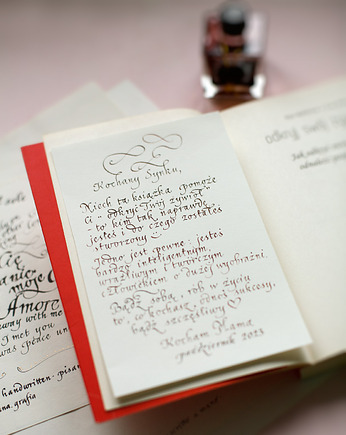 Kochany Synku,
Niech ta książka pomoże
Ci "odkryć Twój żywioł"
- to kim tak naprawdę
jesteś i do czego zostałeś
stworzony
Jedno jest pewne: jesteś
bardzo inteligentnym,
wrażliwym i twórczym
człowiekiem o dużej wyobraźni.
Bądź sobą, rób w życiu
to, co kochasz, odnoś sukcesy,
bądź szczęśliwy ♡
Kocham Mama
październik 2023
nie
moje
Amore
away with me
I met you
was peace un
handwritten - pisan
na.grafia